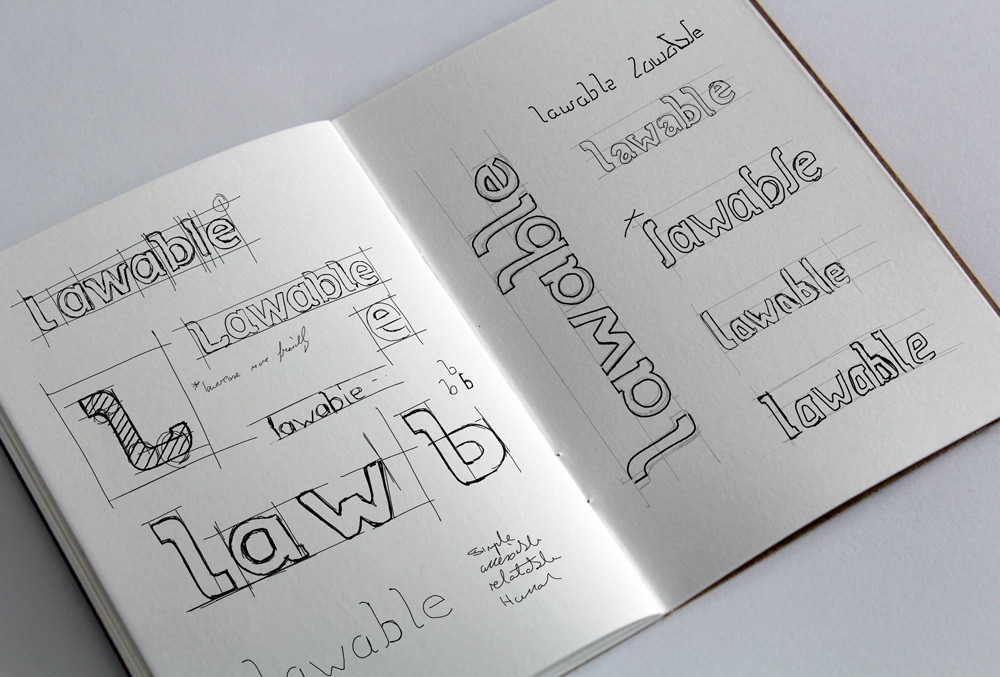 Lawable
Lawable
e
*lowercase more friendly
l
lawable
b
b b
law b
simple
accessible
relatable
Human
lawable
lawable lawable
lawable
lawable
lawable
lawable
lawable